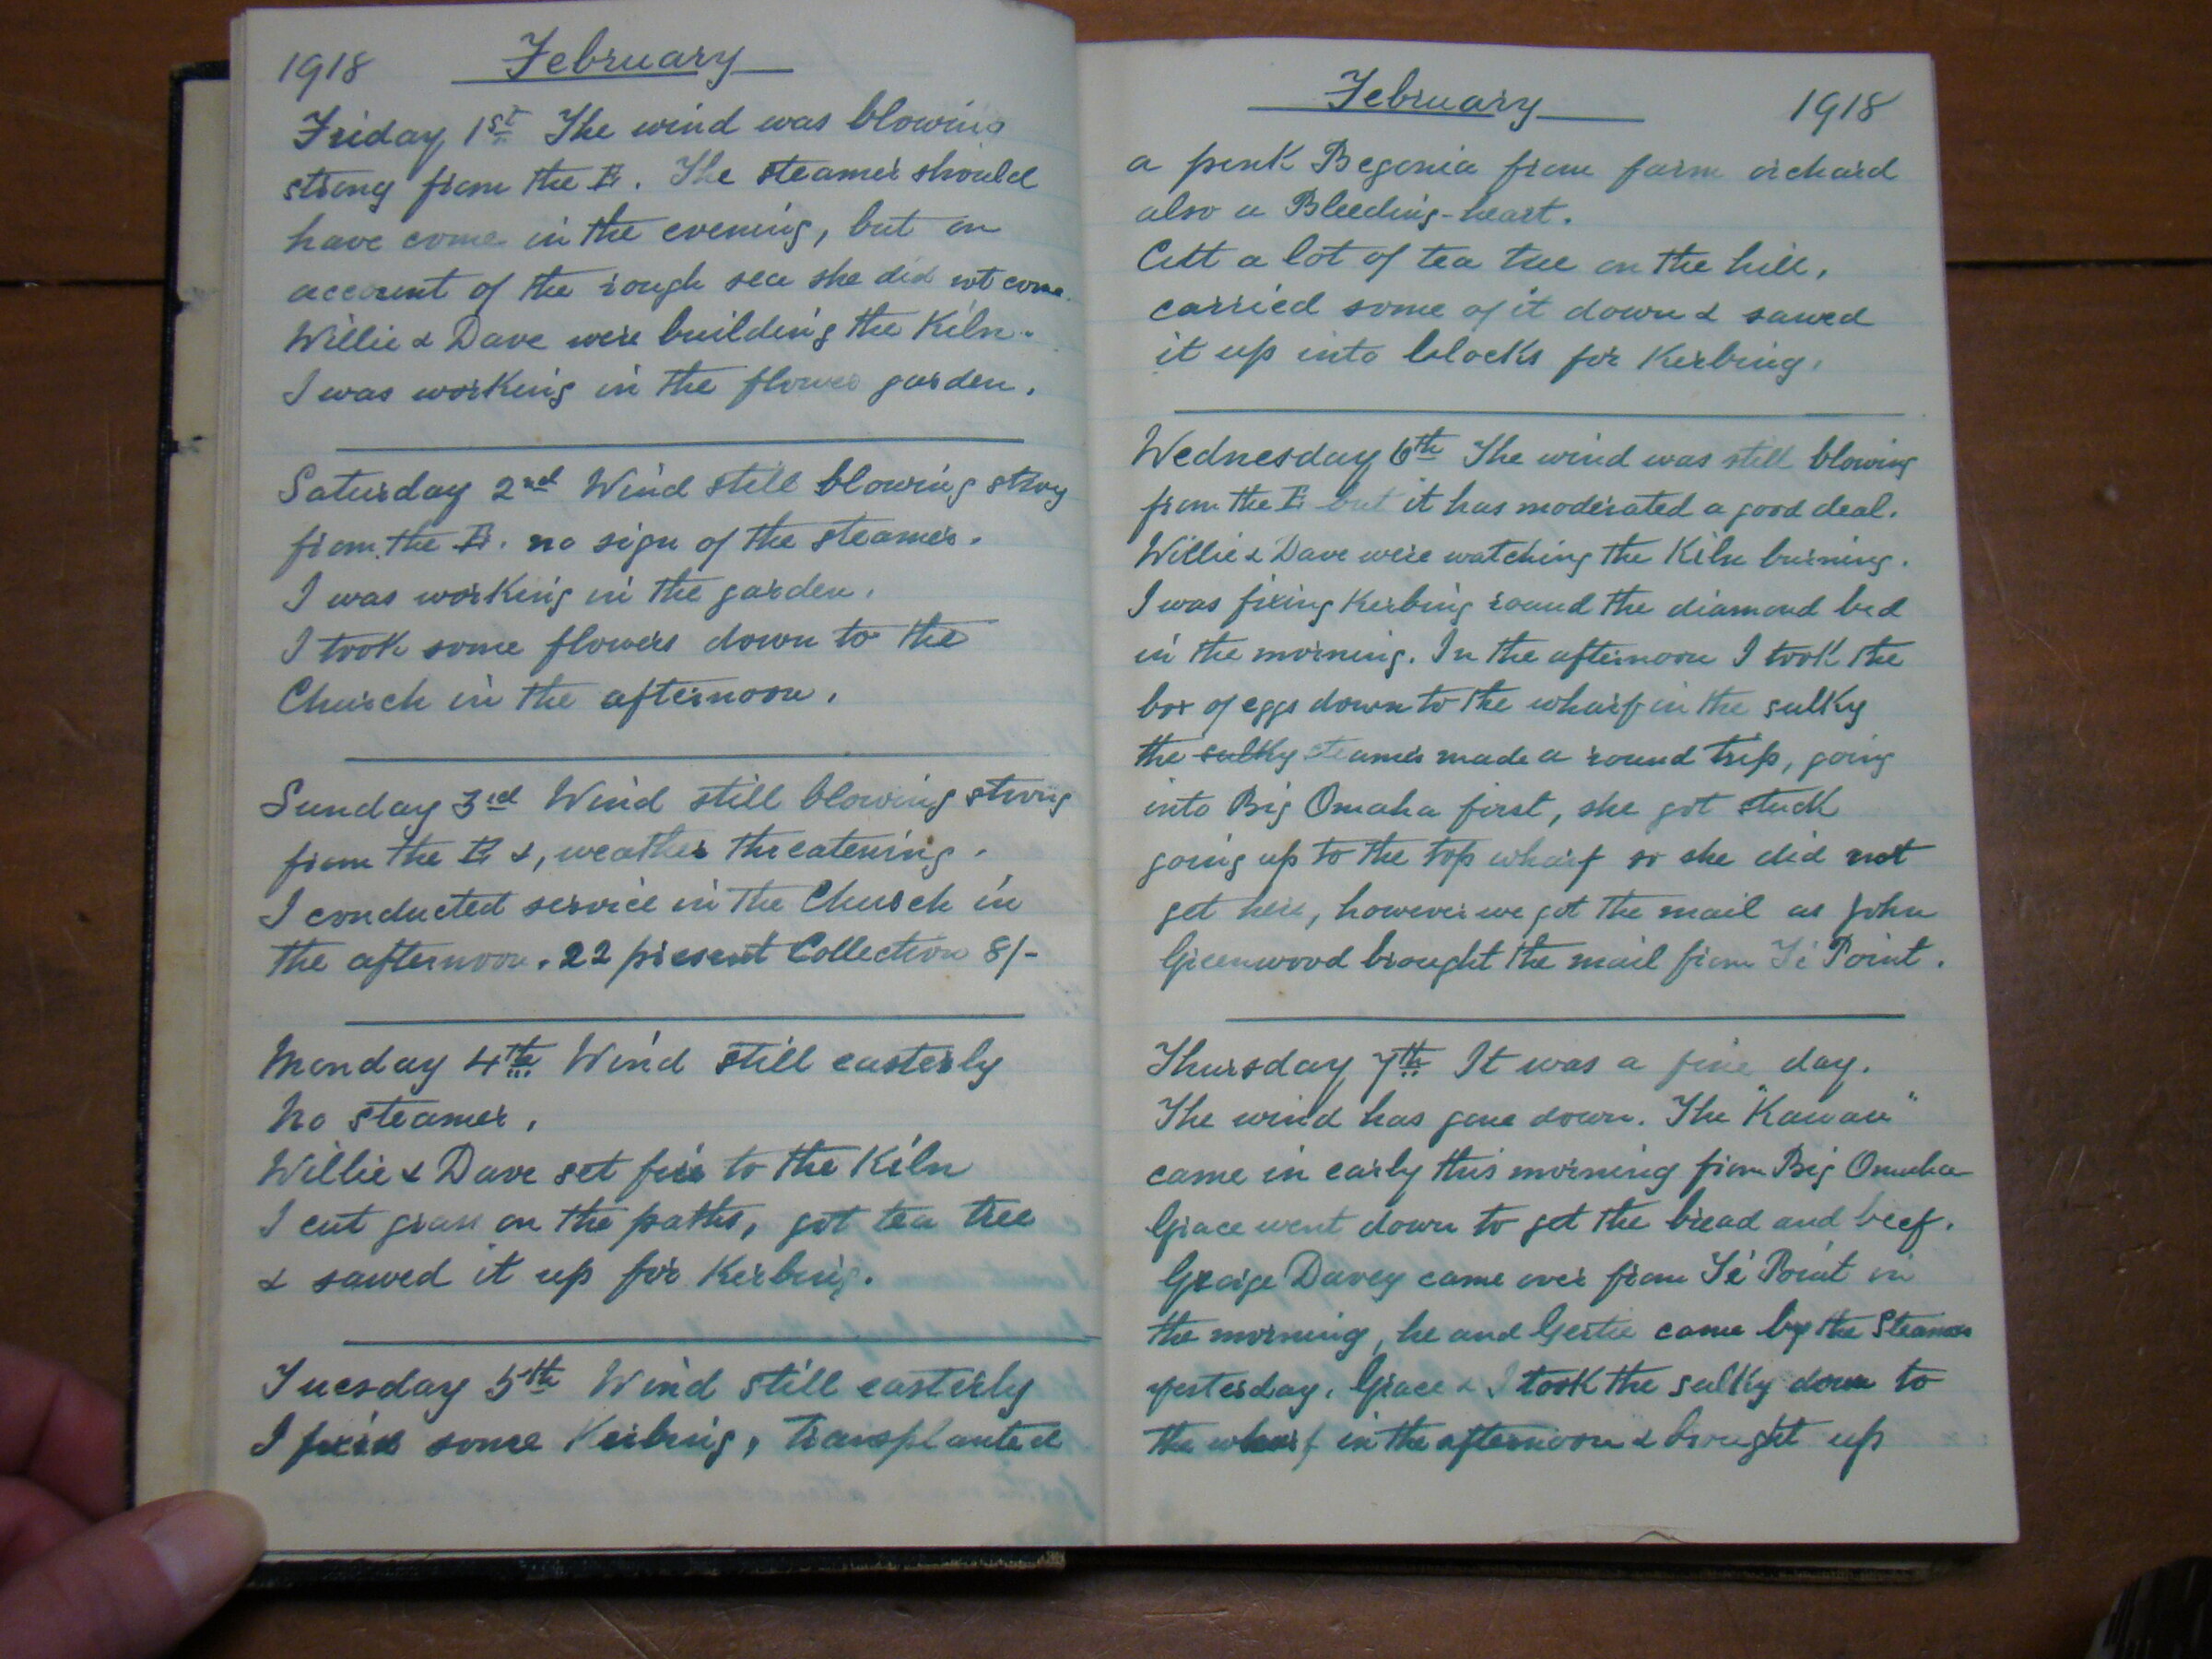 1918 February
Friday 1st The wind was blowing
strong from the E. The steamer should
have come in the evening, but on
account of the rough sea she did not come.
Willie & Dave were building the Kiln.
I was working in the flower garden.
Saturday 2nd Wind still blowing strong
from the E. no sign of the steamer.
I was working in the garden.
I took some flowers down to the
Church in the afternoon.
Sunday 3rd Wind still blowing strong
from the E &, weather threatening.
I conducted service in the Church in
the afternoon. 22 present Collection 8/-
Monday 4th Wind still easterly
no steamer.
Willie & Dave set fire to the Kiln
I cut grass on the paths, got tea tree
& sawed it up for Kerbing.
Tuesday 5th Wind still easterly
I some Kerbing, transplanted
February 1918
a pink Begonia from farm orchard
also a Bleeding-heart.
Cut a lot of tea tree on the hill,
carried some of it down & sawed
it up into blocks for Kerbing.
Wednesday 6th The wind was still blowing
from the E but it has moderated a good deal.
Willie & Dave were watching the Kiln burning.
I was fixing Kerbing round the diamond bed
in the morning. In the afternoon I took the
box of eggs down to the wharf in the sulky
the sulky steamer made a round trip, going
into Big Omaha first, she got stuck
going up to the top wharf so she did not
get here, however we got the mail as John
Greenwood brought the mail from Ti Point.
Thursday 7th It was a fine day.
The wind has gone down. The "Kawau"
came in early this morning from Big Omaha
Grace went down to get the bread and beef.
George Davey came over from Ti Point in
the morning, he and Gertie came by the Steamer
yesterday. Grace & I took the sulky down to
the wharf in the afternoon & brought up